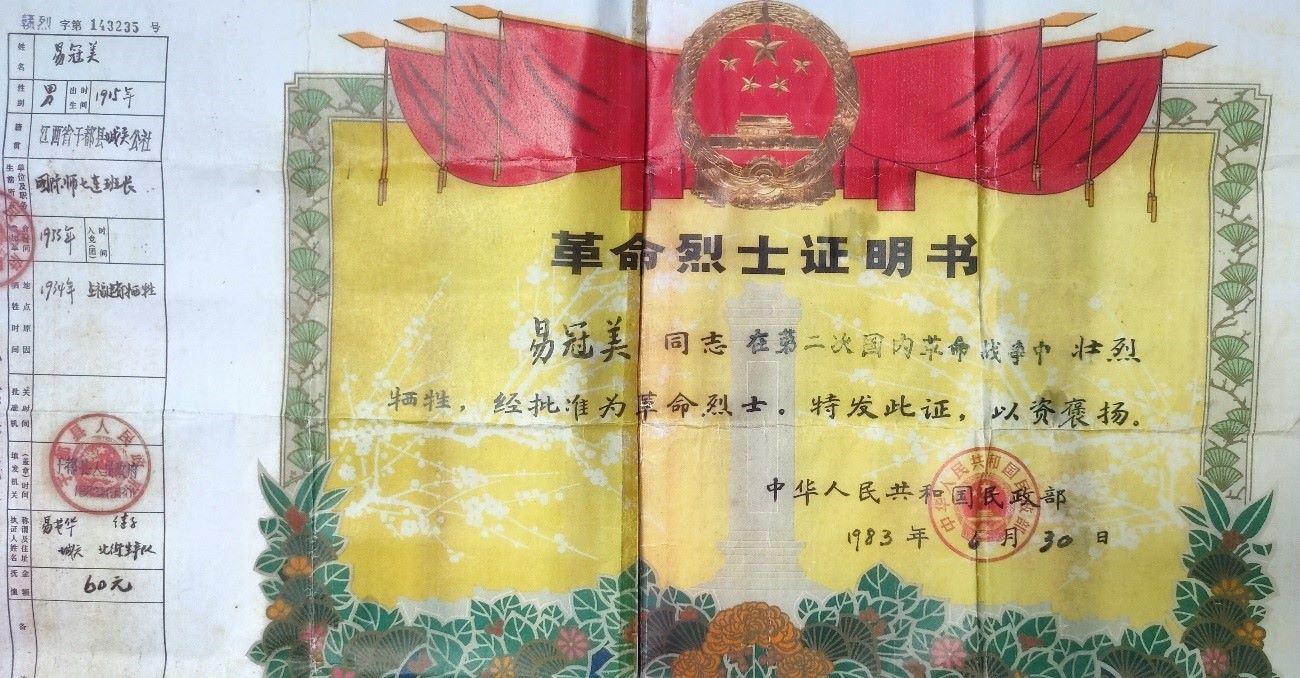 赣烈 字第 143235 号
姓名 易冠美
性别 男 出生时间 1915年
籍贯 江西省于都县城关公社
生前所在单位及职务 国际师七连班长
1933年 入党(团)时间
牺牲时间地点原因 1934年 福建牺牲
批准机关时间
填发机关(盖章)时间 于都县人民政府
执证人姓名称谓及住址 易 华 侄子
城关
抚恤金额 60元
备
革命烈士证明书
易冠美 同志 在第二次国内革命战争中 壮烈
牺牲，经批准为革命烈士。特发此证，以资褒扬。
中华人民共和国民政部
1983 年 6 月 30 日
中华人民共和国民政部